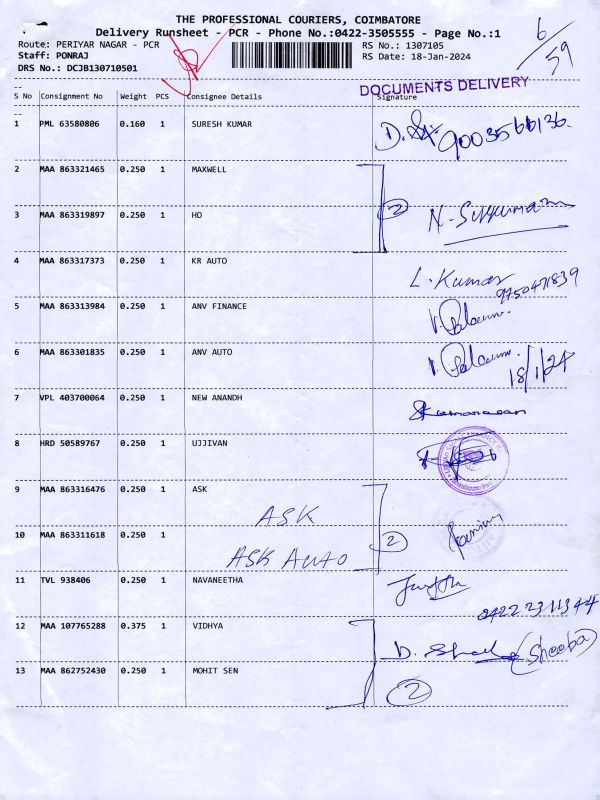 THE PROFESSIONAL COURIERS, COIMBATORE
Delivery Runsheet - PCR - Phone No.:0422-3505555 - Page No.:1
Route: PERIYAR NAGAR - PCR RS No.: 1307105
Staff: PONRAJ RS Date: 18-Jan-2024
DRS No.: DCJB130710501
6/59
DOCUMENTS DELIVERY
S No Consignment No Weight PCS Consignee Details Signature
1 PML 63580806 0.160 1 SURESH KUMAR
2 MAA 863321465 0.250 1 MAXWELL 2
3 MAA 863319897 0.250 1 HO
4 MAA 863317373 0.250 1 KR AUTO L. Kumar
9750471839
5 MAA 863313984 0.250 1 ANV FINANCE
6 MAA 863301835 0.250 1 ANV AUTO
18/1/24
7 VPL 403700064 0.250 1 NEW ANANDH
8 HRD 50589767 0.250 1 UJJIVAN
9 MAA 863316476 0.250 1 ASK
ASK
10 MAA 863311618 0.250 1 2
ASK AUTO
11 TVL 938406 0.250 1 NAVANEETHA
0422 2311344
12 MAA 107765288 0.375 1 VIDHYA
(Sheeba)
13 MAA 862752430 0.250 1 MOHIT SEN 2